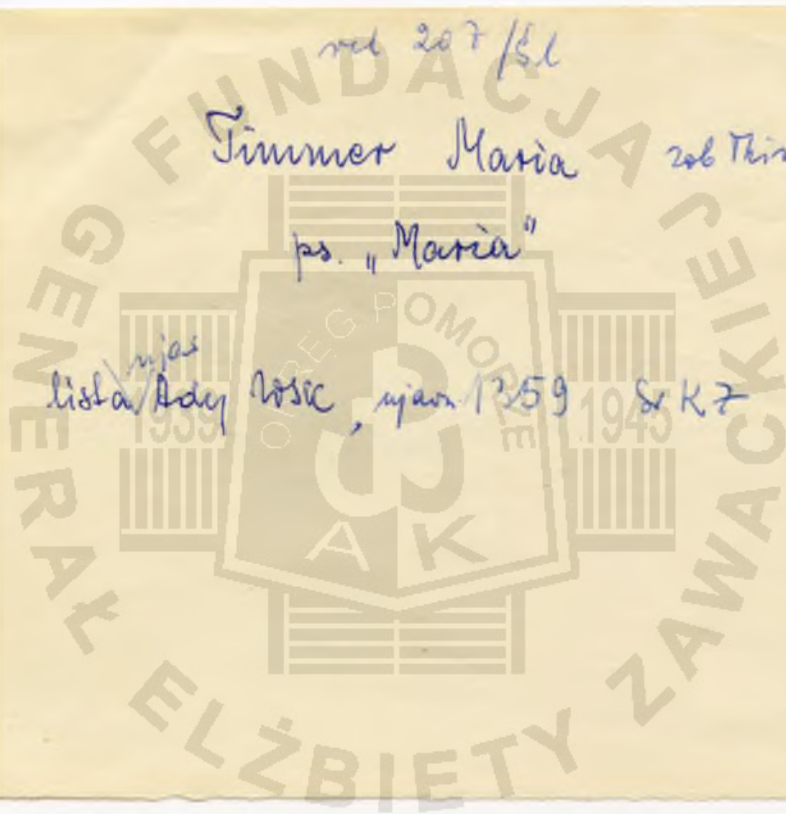 207/Śl
Timmer Maria zob Thim
ps. "Maria"
ujaw
lista Ady WSK, ujawn 1359 Sr K 7
FUNDACJA GENERAŁ ELŻBIETY ZAWACKIEJ
OKRĘG POMORZE
1939 1945
AK